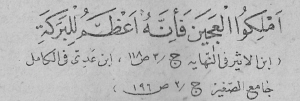 امْلِكُوا الْعَجِينَ فَاَنَّهُ اَعْظَمُ لِلْبَرَكَةِ
(ابن الاثير فی النهایه ج /۳ ص ۱۱۸ ، ابن عدّی فی الكامل
جامع الصّغیر ج /۲ ص ۱۹٦